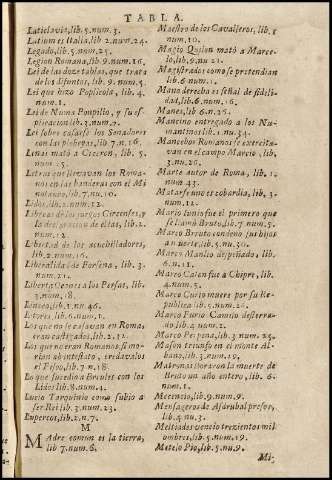 TABLA.
Laticlavia, lib. 5. num. 3.
Latium es Italia, lib 2. num. 24.
Legado, lib. 5. num. 25.
Legion Romana, lib. 9. num. 16.
Lei de las doze tablas, que trata
de los difuntos, lib. 9. num. 5.
Lei que hizo Poplicola, lib. 4.
num. 1.
Lei de Numa Pompilio, y su ex-
plicacion lib. 3. num. 7.
Lei sobre casarse los Senadores
con las plebeyas, lib 7. n. 16.
Lenas mató à Ciceron, lib. 5.
num. 25.
Letras que llevavan los Roma-
nos en las banderas con el Mi
notauro, lib. 7. nu. 10.
Lidos, lib. 2. num. 12.
Libreas de los juegos Circenses, y
la declaracion de ellas, lib. 2.
num. 12.
Libertad de los acuchilladores,
lib. 2. num. 16.
Liberalidad de Porsena, lib. 3.
num. 21.
Libert
lib. 3.
num. 18.
Linceo, lib. 3. nu. 46.
Litores, lib. 6. num. 1.
Los que no se casavan en Roma,
eran castigados, lib. 2. 51.
Los que no eran Romanos, si mo-
rian abintestato, eredavalos
el Fisco, lib. 7. n. 18.
Lo que sucedio a Ercules con los
Lidos, lib. 8. num. 4.
Lucio Tarquinio como subio a
ser Rei lib. 3. num. 23.
Lupercos, lib. 2. n. 7.
M
MAdre comun es la tierra,
lib 7. num. 6.
Maestro de los Cavalleros, lib. 5
num. 10.
Magio Quilon mató a Marce-
lo, lib. 9. nu 21.
Magistrados como se pretendian
lib. 6. num. 1.
Mano derecha es señal de fideli-
dad, lib. 6. num. 16.
Manes, lib. 6. n. 25.
Mancino entregado a los Nu-
mantinos lib. 1. nu. 34.
Mancebos Romanos se exercita-
van en el campo Marcio, lib.
3. nu. 26.
Marte autor de Roma, lib. 1.
num 43.
Matarse uno es cobardia, lib. 3.
num. 12.
Mario
fue el primero que
se llamò Bruto, lib. 7 num. 5.
Marco Bruto condenò sus hijos
a muerte, lib. 5. nu. 30.
Marco Manlio despeñado, lib.
6. n. 21.
Marco Caton fue a Chipre, lib.
4. num. 5.
Marco Curio muere por su Re-
publica lib. 5. num. 20.
Marco Furio Camilo desterra-
do, lib. 4. num. 2.
Marco Perpena, lib. 3 num. 25.
Mason triunfo en el monte Al-
bano, lib. 3. num. 19.
Matronas lloraron la muerte de
Bruto un año entero, lib. 6.
num. 1.
Mecencio, lib. 9. num. 9.
Mensageros de Asdrubal presos,
lib. 4. nu. 3.
Melciades vencio trezientos mil
ombres, lib. 5. num. 19.
Metelo Pio, lib. 5. nu. 9.
Mi-